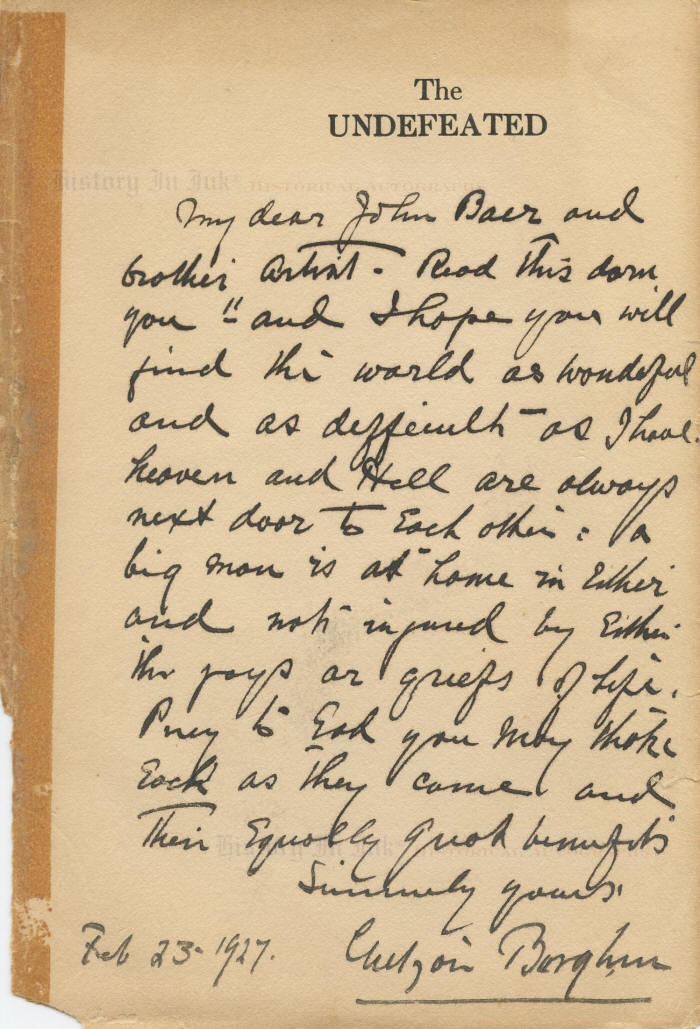 The
UNDEFEATED
History In Ink HISTORICAL AUTOGRAPHS
My dear John Baer and
brother Artist - Read this darn
you " and I hope you will
find the world as wonderful
and as difficult - as I have.
heaven and Hell are always
next door to Each other : a
big man is at home in Either
and not injured by Either
the joys or griefs of life.
Pray to God you may take
Each as they come and
Their Equally Great benefits
History In Ink
Sincerely yours
Feb 23 - 1927. Gutzon Borglum